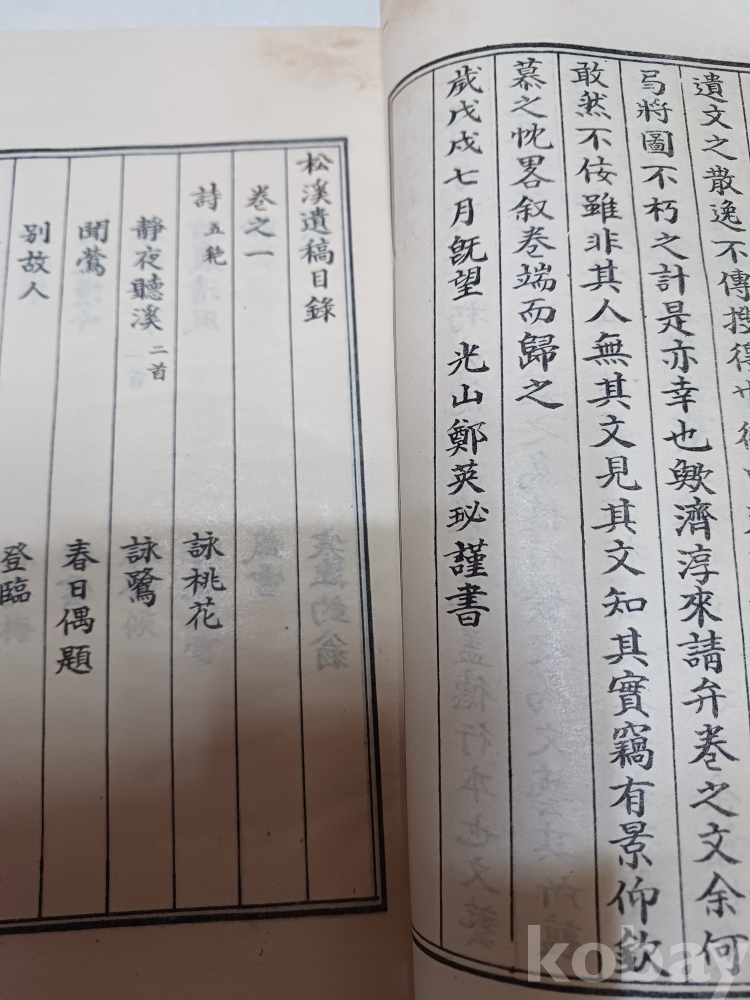 遺文之散逸不傳搜得
弓將圖不朽之計是亦幸也歟濟淳來請弁卷之文余何
敢然不佞雖非其人無其文見其文知其實竊有景仰欽
慕之忱畧叙卷端而歸之
歲戊戌七月旣望 光山鄭英珌謹書
松溪遺稿目錄
卷之一
詩 五絶 詠桃花
靜夜聽溪 二首 詠鷺
聞鶯 春日偶題
別故人 登臨
kobay